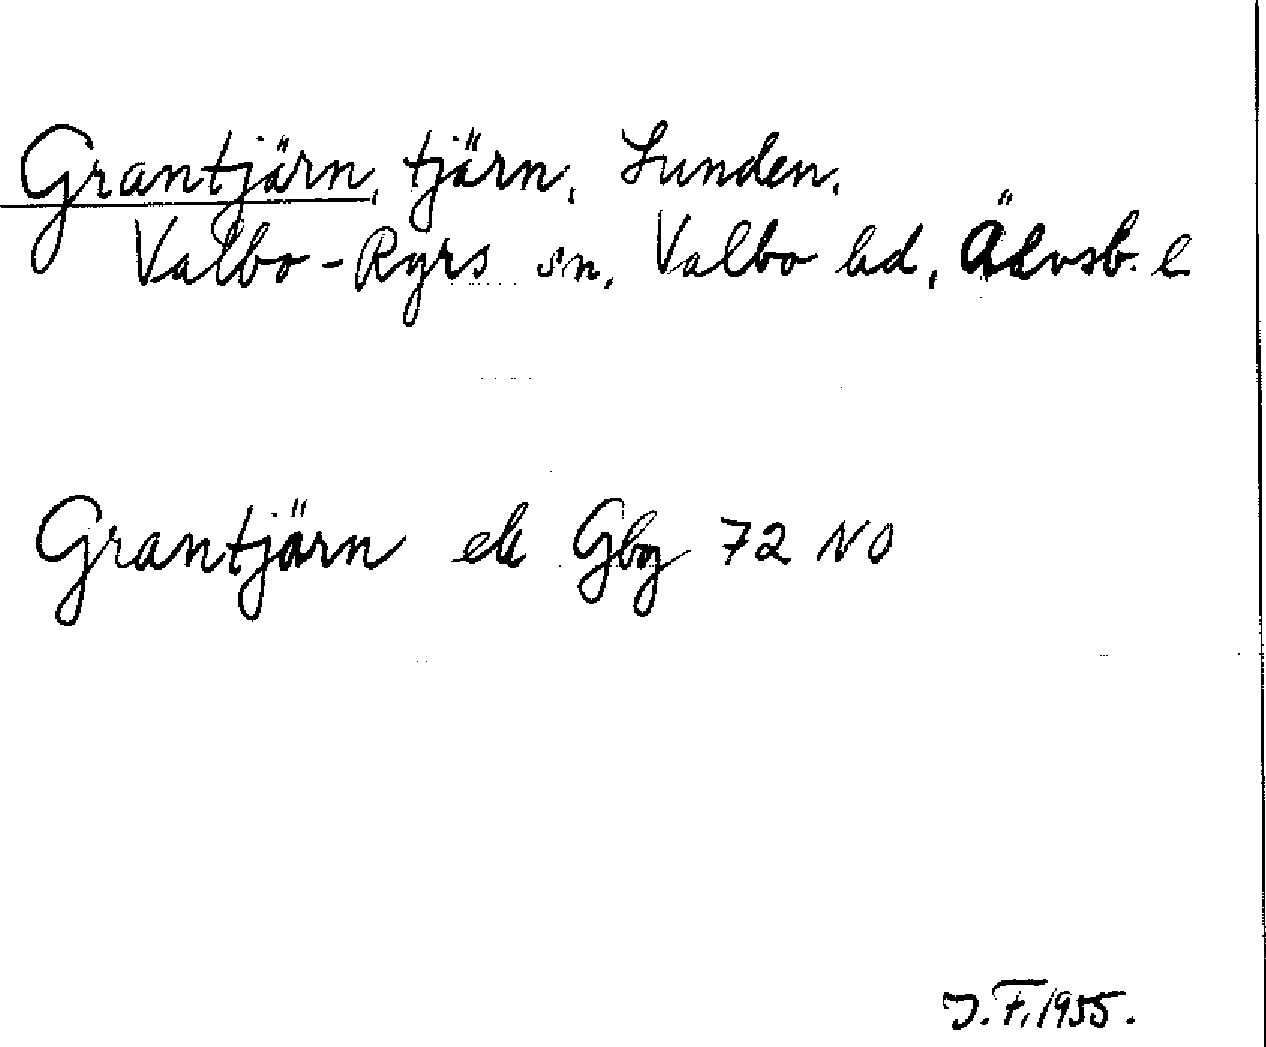 Grantjärn, tjärn, Lunden,
Valbo-Ryrs sn, Valbo hd, Älvsb. l
Grantjärn ek Gbg 72 NO
J.F. 1955.